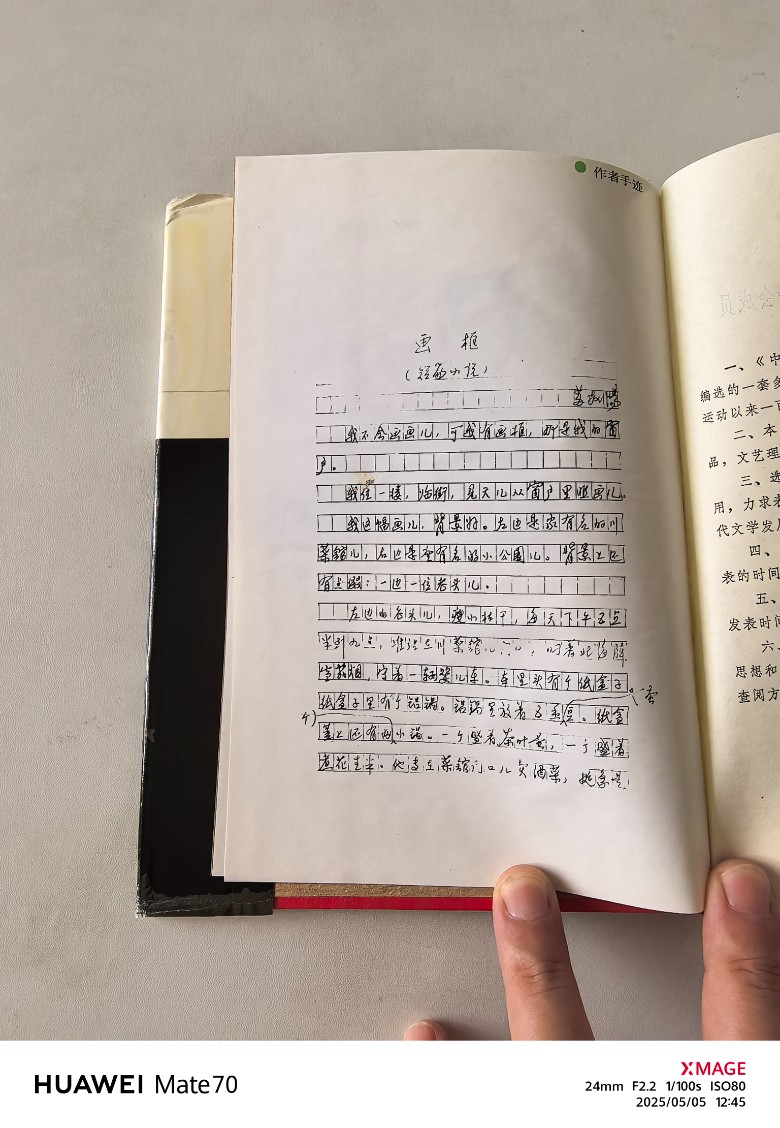 作者手迹
画框
(短篇小说)
苏叔阳
我不会画画儿,可我有画框,那是我的窗
户。
我住一楼,临街,见天儿从窗户里瞧画儿。
我这幅画儿,背景好。左边是家有名的川
菜馆儿,右边是更有名的小公园儿。背景上还
有点缀:一边一位老头儿。
左边的老头儿,瘦小枯干,每天下午五点
半到九点,准站在川菜馆儿门口,叼着北海牌
雪茄烟,守着一辆婴儿车。车里头有个纸盒子
纸盒子里有个铝锅。铝锅里放着五香
蚕
豆。纸盒
盖上还有两
个
小锅。一个盛着茶叶蛋,一个盛着
煮花生米。他专在菜馆门口儿卖酒菜,
一、《中
编选的一套多
运动以来一百
二、本
品,文艺理
三、选
用,力求表
代文学发展
四、
表的时间
五、
发表时间
六、
思想和
查阅方
会成员
HUAWEI Mate70
XMAGE
24mm F2.2 1/100s ISO80
2025/05/05 12:45